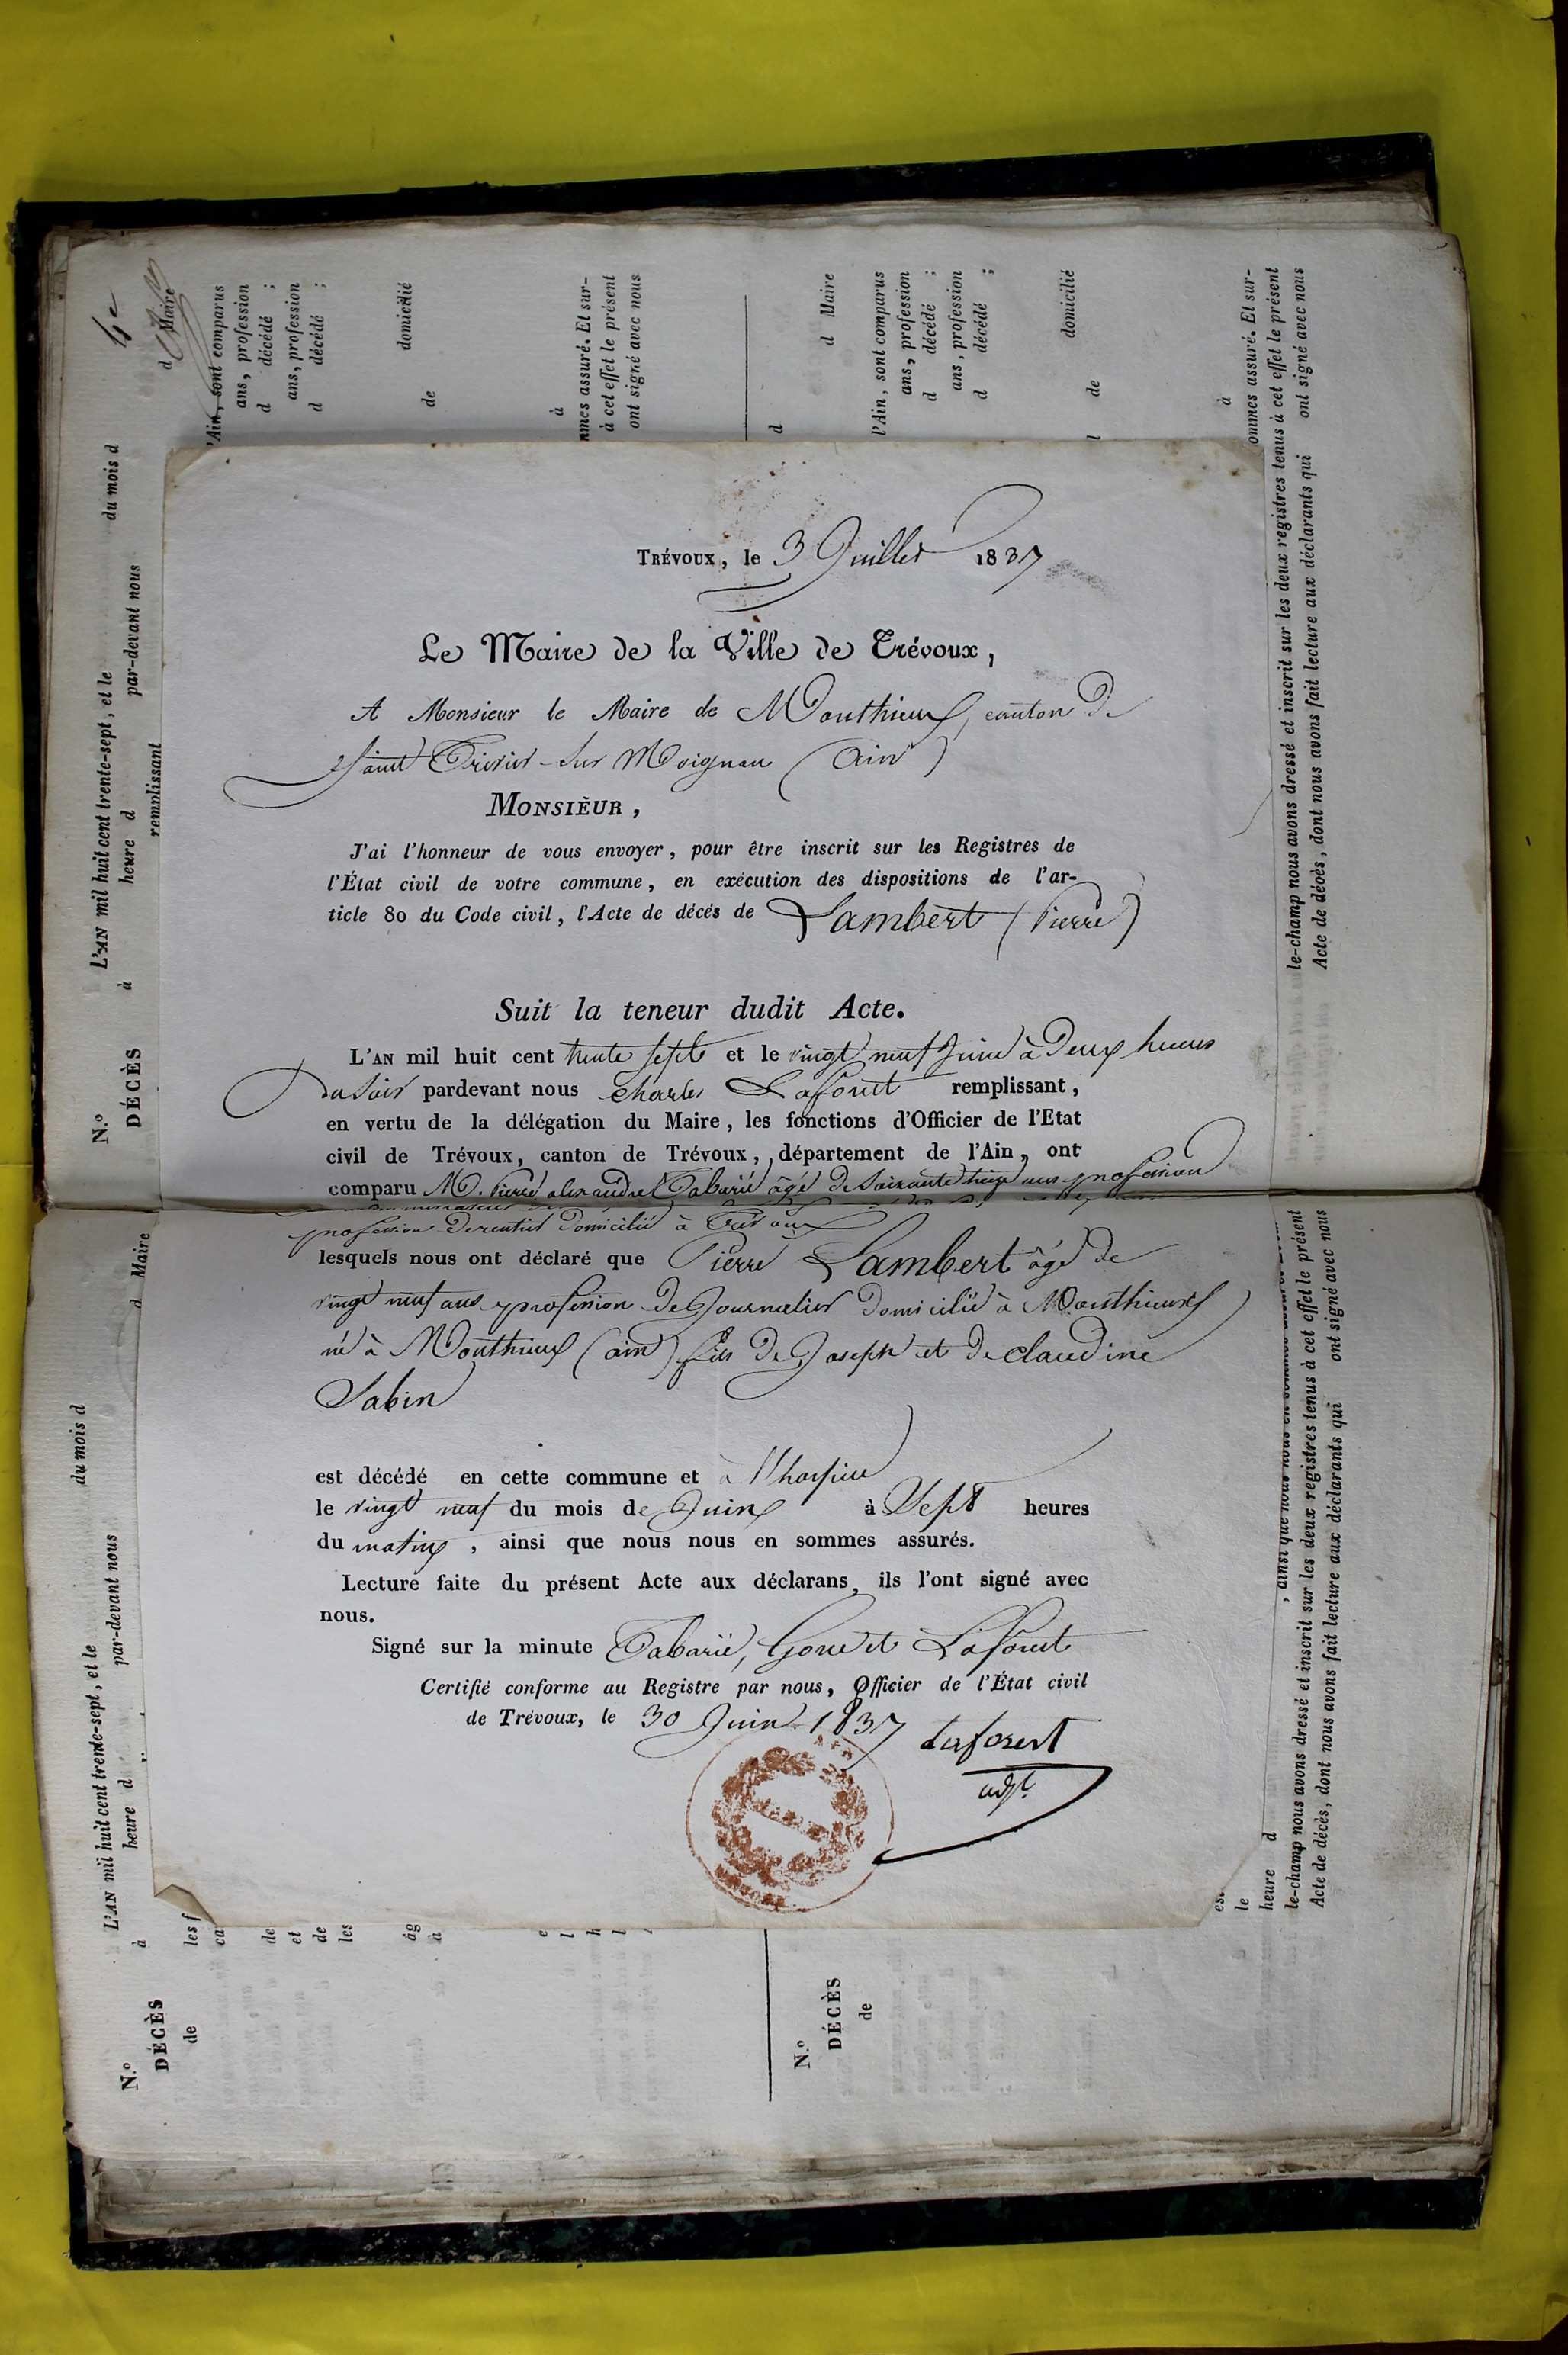 TRÉVOUX, le 3 Juillet 1837
Le Maire de la Ville de Trévoux,
A Monsieur le Maire de Monthieux, canton de
Saint Trivier sur Moignan (Ain)
MONSIEUR,
J'ai l'honneur de vous envoyer, pour être inscrit sur les Registres de
l'État civil de votre commune, en exécution des dispositions de l'ar-
ticle 80 du Code civil, l'Acte de décés de Lambert (Pierre)
Suit la teneur dudit Acte.
L'AN mil huit cent trente sept et le vingt neuf Juin à Deux heures
du soir pardevant nous Charles Laforest remplissant,
en vertu de la délégation du Maire, les fonctions d'Officier de l'Etat
civil de Trévoux, canton de Trévoux, département de l'Ain, ont
comparu M. Pierre alexandre Tabarié âgé de soixante treize ans profession
profession de rentier domicilié à Trévoux
lesquels nous ont déclaré que Pierre Lambert âgé de
vingt neuf ans profession de Journalier domicilié à Monthieux
né à Monthieux (ain) fils de Joseph et de claudine
Sabin
est décédé en cette commune et à l'hospice
le vingt neuf du mois de Juin à Sept heures
du matin, ainsi que nous nous en sommes assurés.
Lecture faite du présent Acte aux déclarans, ils l'ont signé avec
nous.
Signé sur la minute Tabarié, et Laforest
Certifié conforme au Registre par nous, Officier de l'État civil
de Trévoux, le 30 Juin 1837
Laforest
adjt
N.º
DÉCÈS
L'AN mil huit cent trente-sept, et le du mois d
à heure d par-devant nous
remplissant
d Maire
'Ain, sont comparus
ans, profession
d décédé ;
ans, profession
d décédé ;
de domicilié
à
mmes assuré. Et sur-
à cet effet le présent
ont signé avec nous
d Maire
l'Ain, sont comparus
ans, profession
d décédé ;
ans, profession
d décédé ;
l de domicilié
à
ommes assuré. Et sur-
le-champ nous avons dressé et inscrit sur les deux registres tenus à cet effet le présent
Acte de décès, dont nous avons fait lecture aux déclarants qui ont signé avec nous
N.º
DÉCÈS
de
L'AN mil huit cent trente-sept, et le du mois d
à heure d par-devant nous
d Maire
les f
ca
de
et
de
les
âg
à
N.º
DÉCÈS
de
le
heure d
, ainsi que nous nous en sommes
le-champ nous avons dressé et inscrit sur les deux registres tenus à cet effet le présent
Acte de décès, dont nous avons fait lecture aux déclarants qui ont signé avec nous